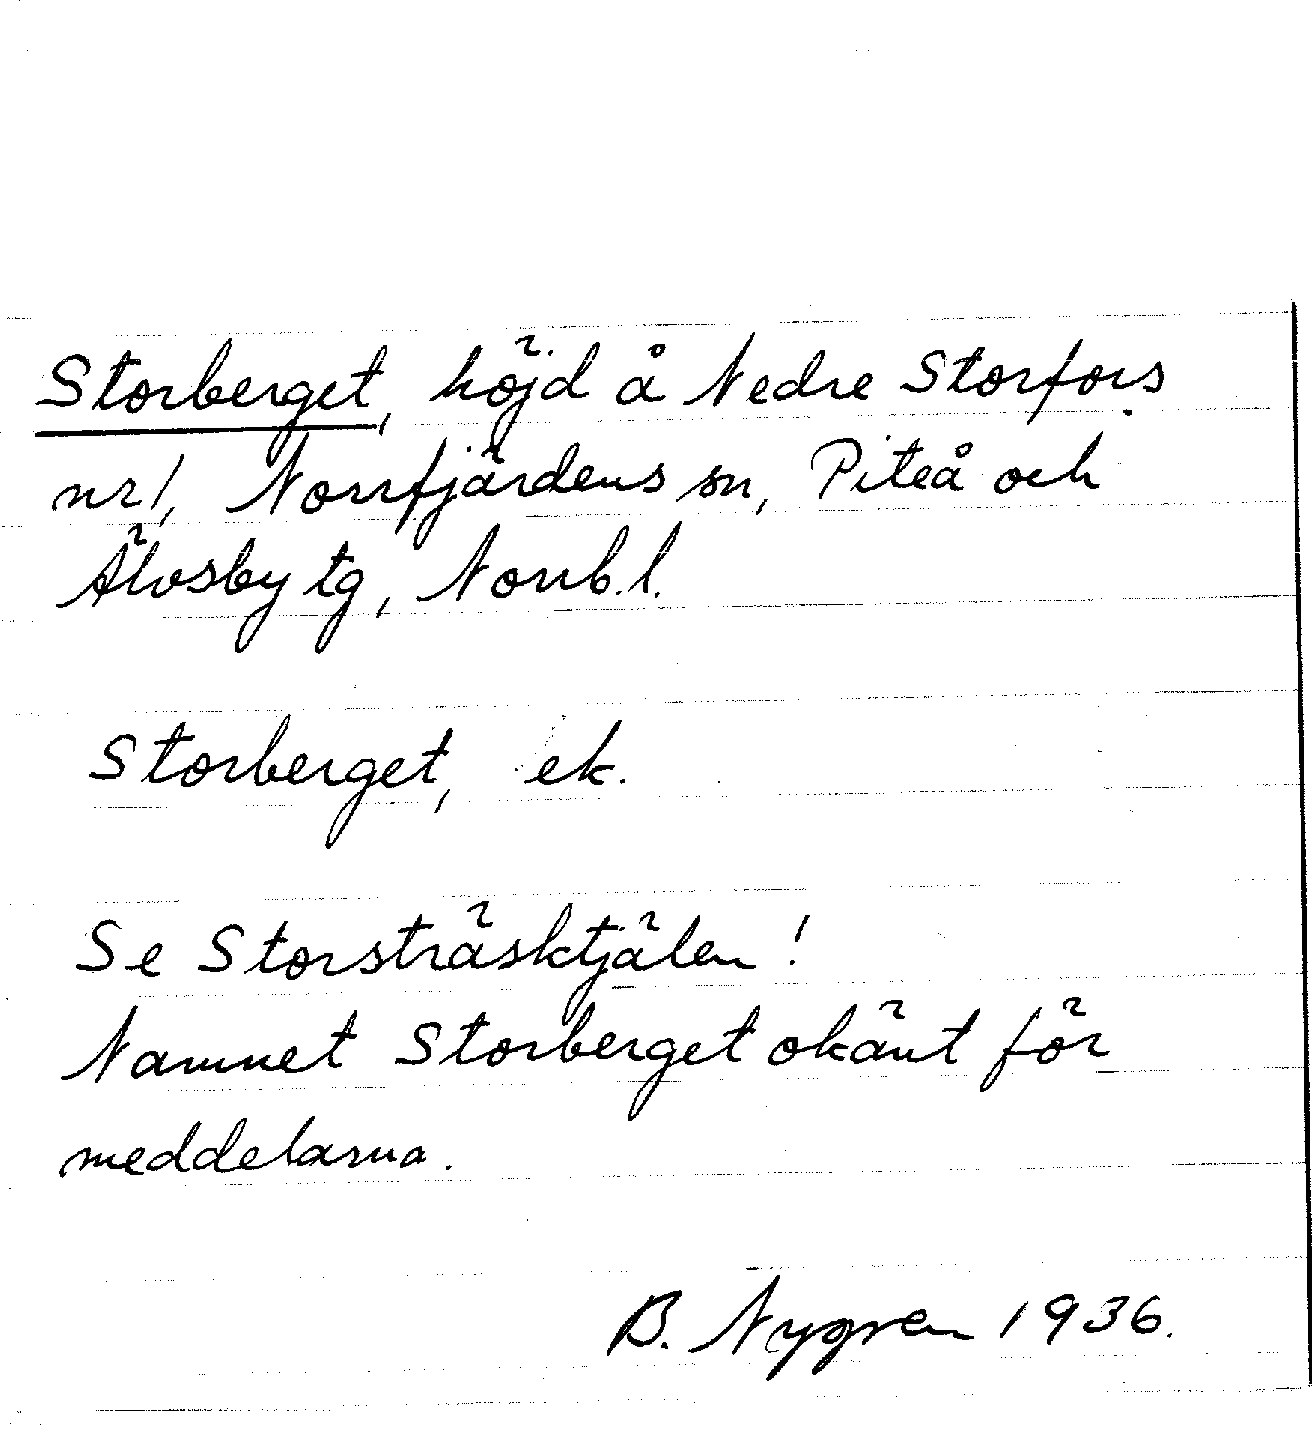 Storberget, höjd å Nedre Storfors
nr 1, Norrfjärdens sn, Piteå och
Älvsby tg, Norrb. l.
Storberget, ek.
Se Storsträsktjälen!
Namnet Storberget okänt för
meddelarna.
B. Nygren 1936.